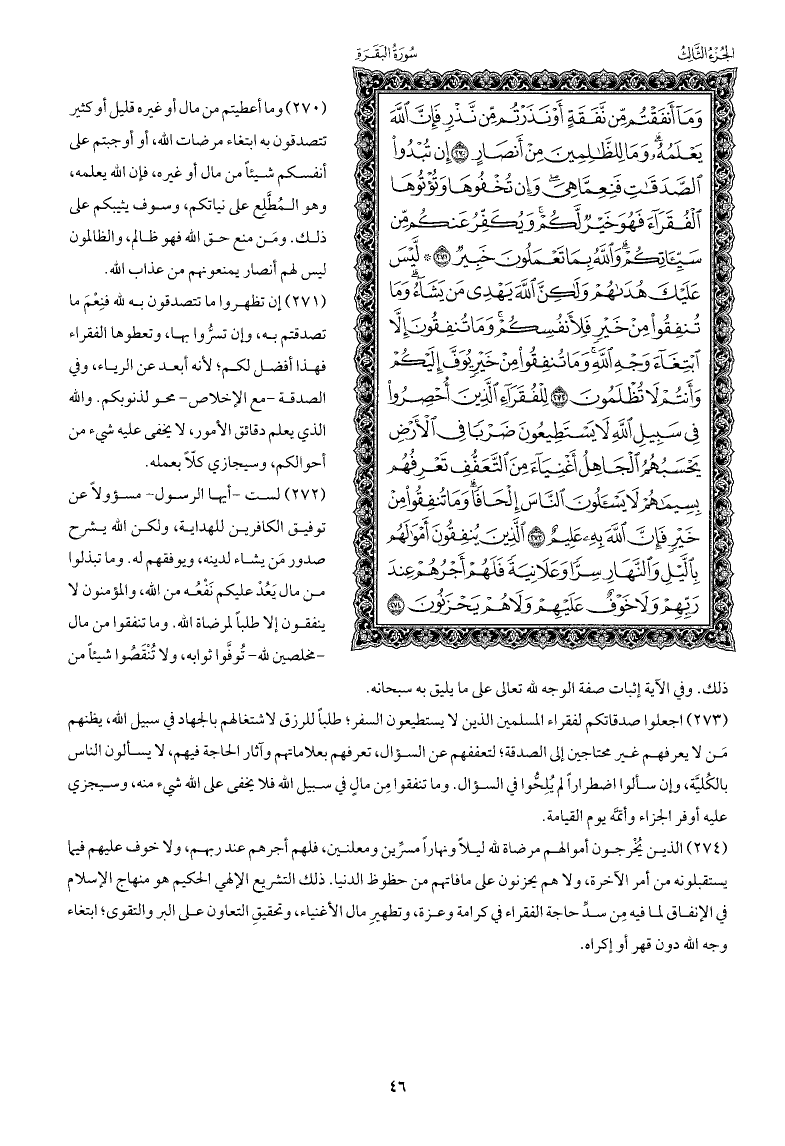 الجزء الثالث
سورة البقرة
وَمَآ أَنفَقۡتُم مِّن نَّفَقَةٍ أَوۡ نَذَرۡتُم مِّن نَّذۡرٖ فَإِنَّ ٱللَّهَ
يَعۡلَمُهُۥۗ وَمَا لِلظَّٰلِمِينَ مِنۡ أَنصَارٍ ٢٧٠ إِن تُبۡدُواْ
ٱلصَّدَقَٰتِ فَنِعِمَّا هِيَۖ وَإِن تُخۡفُوهَا وَتُؤۡتُوهَا
ٱلۡفُقَرَآءَ فَهُوَ خَيۡرٞ لَّكُمۡۚ وَيُكَفِّرُ عَنكُم مِّن
سَيِّـَٔاتِكُمۡۗ وَٱللَّهُ بِمَا تَعۡمَلُونَ خَبِيرٞ ٢٧١ ۞ لَّيۡسَ
عَلَيۡكَ هُدَىٰهُمۡ وَلَٰكِنَّ ٱللَّهَ يَهۡدِي مَن يَشَآءُۗ وَمَا
تُنفِقُواْ مِنۡ خَيۡرٖ فَلِأَنفُسِكُمۡۚ وَمَا تُنفِقُونَ إِلَّا
ٱبۡتِغَآءَ وَجۡهِ ٱللَّهِۚ وَمَا تُنفِقُواْ مِنۡ خَيۡرٖ يُوَفَّ إِلَيۡكُمۡ
وَأَنتُمۡ لَا تُظۡلَمُونَ ٢٧٢ لِلۡفُقَرَآءِ ٱلَّذِينَ أُحۡصِرُواْ
فِي سَبِيلِ ٱللَّهِ لَا يَسۡتَطِيعُونَ ضَرۡبٗا فِي ٱلۡأَرۡضِ
يَحۡسَبُهُمُ ٱلۡجَاهِلُ أَغۡنِيَآءَ مِنَ ٱلتَّعَفُّفِ تَعۡرِفُهُم
بِسِيمَٰهُمۡ لَا يَسۡـَٔلُونَ ٱلنَّاسَ إِلۡحَافٗاۗ وَمَا تُنفِقُواْ مِنۡ
خَيۡرٖ فَإِنَّ ٱللَّهَ بِهِۦ عَلِيمٌ ٢٧٣ ٱلَّذِينَ يُنفِقُونَ أَمۡوَٰلَهُم
بِٱلَّيۡلِ وَٱلنَّهَارِ سِرّٗا وَعَلَانِيَةٗ فَلَهُمۡ أَجۡرُهُمۡ عِندَ
رَبِّهِمۡ وَلَا خَوۡفٌ عَلَيۡهِمۡ وَلَا هُمۡ يَحۡزَنُونَ ٢٧٤
(٢٧٠) وما أعطيتم من مال أو غيره قليل أو كثير
تتصدقون به ابتغاء مرضات الله، أو أوجبتم على
أنفسكم شيئاً من مال أو غيره، فإن الله يعلمه،
وهو المُطَّلِع على نياتكم، وسوف يثيبكم على
ذلك. ومَن منع حق الله فهو ظالم، والظالمون
ليس لهم أنصار يمنعونهم من عذاب الله.
(٢٧١) إن تظهروا ما تتصدقون به لله فنِعْمَ ما
تصدقتم به، وإن تسرُّوا بها، وتعطوها الفقراء
فهذا أفضل لكم؛ لأنه أبعد عن الرياء، وفي
الصدقة -مع الإخلاص- محو لذنوبكم. والله
الذي يعلم دقائق الأمور، لا يخفى عليه شيء من
أحوالكم، وسيجازي كلّاً بعمله.
(٢٧٢) لست -أيها الرسول- مسؤولاً عن
توفيق الكافرين للهداية، ولكن الله يشرح
صدور مَن يشاء لدينه، ويوفقهم له. وما تبذلوا
من مال يَعُدْ عليكم نَفْعُه من الله، والمؤمنون لا
ينفقون إلا طلباً لمرضاة الله. وما تنفقوا من مال
-مخلصين لله- تُوفَّوا ثوابه، ولا تُنْقَصُوا شيئاً من
ذلك. وفي الآية إثبات صفة الوجه لله تعالى على ما يليق به سبحانه.
(٢٧٣) اجعلوا صدقاتكم لفقراء المسلمين الذين لا يستطيعون السفر؛ طلباً للرزق لاشتغالهم بالجهاد في سبيل الله، يظنهم
مَن لا يعرفهم غير محتاجين إلى الصدقة؛ لتعففهم عن السؤال، تعرفهم بعلاماتهم وآثار الحاجة فيهم، لا يسألون الناس
بالكُليَّة، وإن سألوا اضطراراً لم يُلِحُّوا في السؤال. وما تنفقوا مِن مالٍ في سبيل الله فلا يخفى على الله شيء منه، وسيجزي
عليه أوفر الجزاء وأتمَّه يوم القيامة.
(٢٧٤) الذين يُخْرجون أموالهم مرضاة لله ليلاً ونهاراً مسرِّين ومعلنين، فلهم أجرهم عند ربهم، ولا خوف عليهم فيما
يستقبلونه من أمر الآخرة، ولا هم يحزنون على مافاتهم من حظوظ الدنيا. ذلك التشريع الإلهي الحكيم هو منهاج الإسلام
في الإنفاق لما فيه مِن سدِّ حاجة الفقراء في كرامة وعزة، وتطهيرِ مال الأغنياء، وتحقيقِ التعاون على البر والتقوى؛ ابتغاء
وجه الله دون قهر أو إكراه.
٤٦